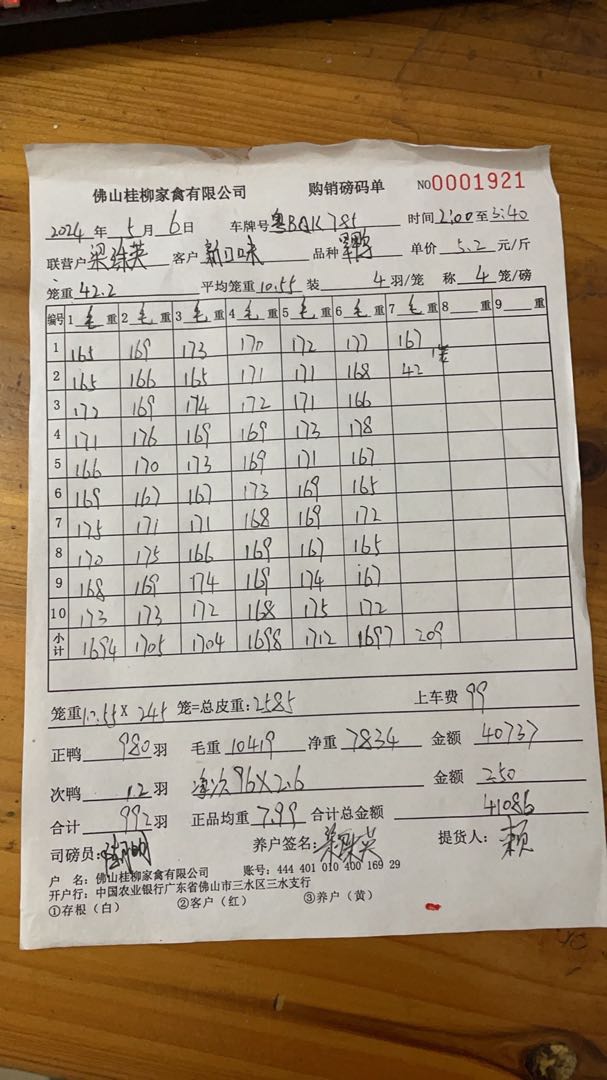 佛山桂柳家禽有限公司 购销磅码单 NO 0001921
2024 年 5 月 6 日 车牌号 粤BAK785 时间 2:00 至 3:40
联营户 梁绿英 客户 新口味 品种 单价 5.2 元/斤
笼重 42.2 平均笼重 10.55 装 4 羽/笼 称 4 笼/磅
编号 1 毛 重 2 毛 重 3 毛 重 4 毛 重 5 毛 重 6 毛 重 7 毛 重 8 重 9 重
1 165 169 173 170 172 177 167
2 165 166 165 171 171 168 42
3 172 169 174 172 171 166
4 171 176 169 169 173 178
5 166 170 173 169 171 167
6 169 167 167 173 169 165
7 175 171 171 168 169 172
8 170 175 166 169 167 165
9 168 169 174 169 174 167
10 173 173 172 168 175 172
小计 1694 1705 1704 1698 1712 1697 209
笼重 10.55 × 245 笼=总皮重: 2585 上车费 99
正鸭 980 羽 毛重 10419 净重 7834 金额 40737
次鸭 12 羽 96×2.6 金额 250
合计 992 羽 正品均重 7.99 合计总金额 41086
司磅员: 养户签名: 梁绿英 提货人: 赖
户 名: 佛山桂柳家禽有限公司 账号: 444 401 010 400 169 29
开户行: 中国农业银行广东省佛山市三水区三水支行
①存根（白） ②客户（红） ③养户（黄）